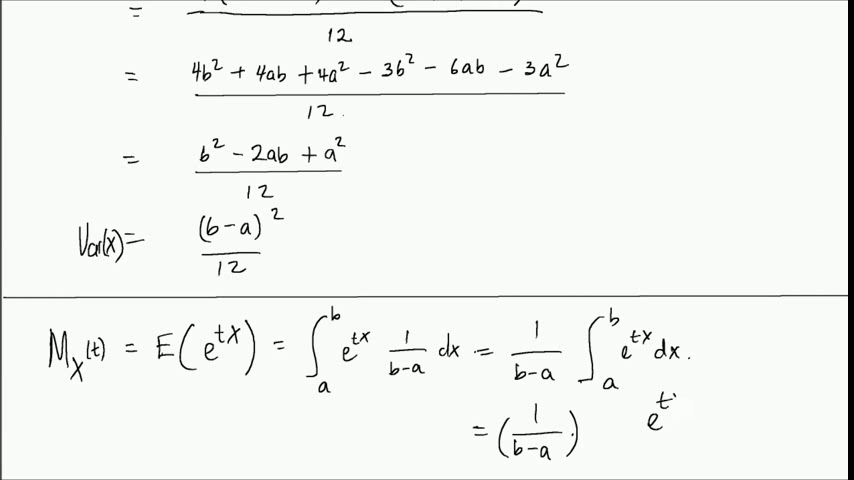 = 12
= 4b² + 4ab + 4a² - 3b² - 6ab - 3a² / 12.
= b² - 2ab + a² / 12
Var(X) = (b-a)² / 12
M_X(t) = E(e^{tX}) = ∫_a^b e^{tX} 1/(b-a) dx = 1/(b-a) ∫_a^b e^{tX} dx.
= (1/(b-a)) e^t